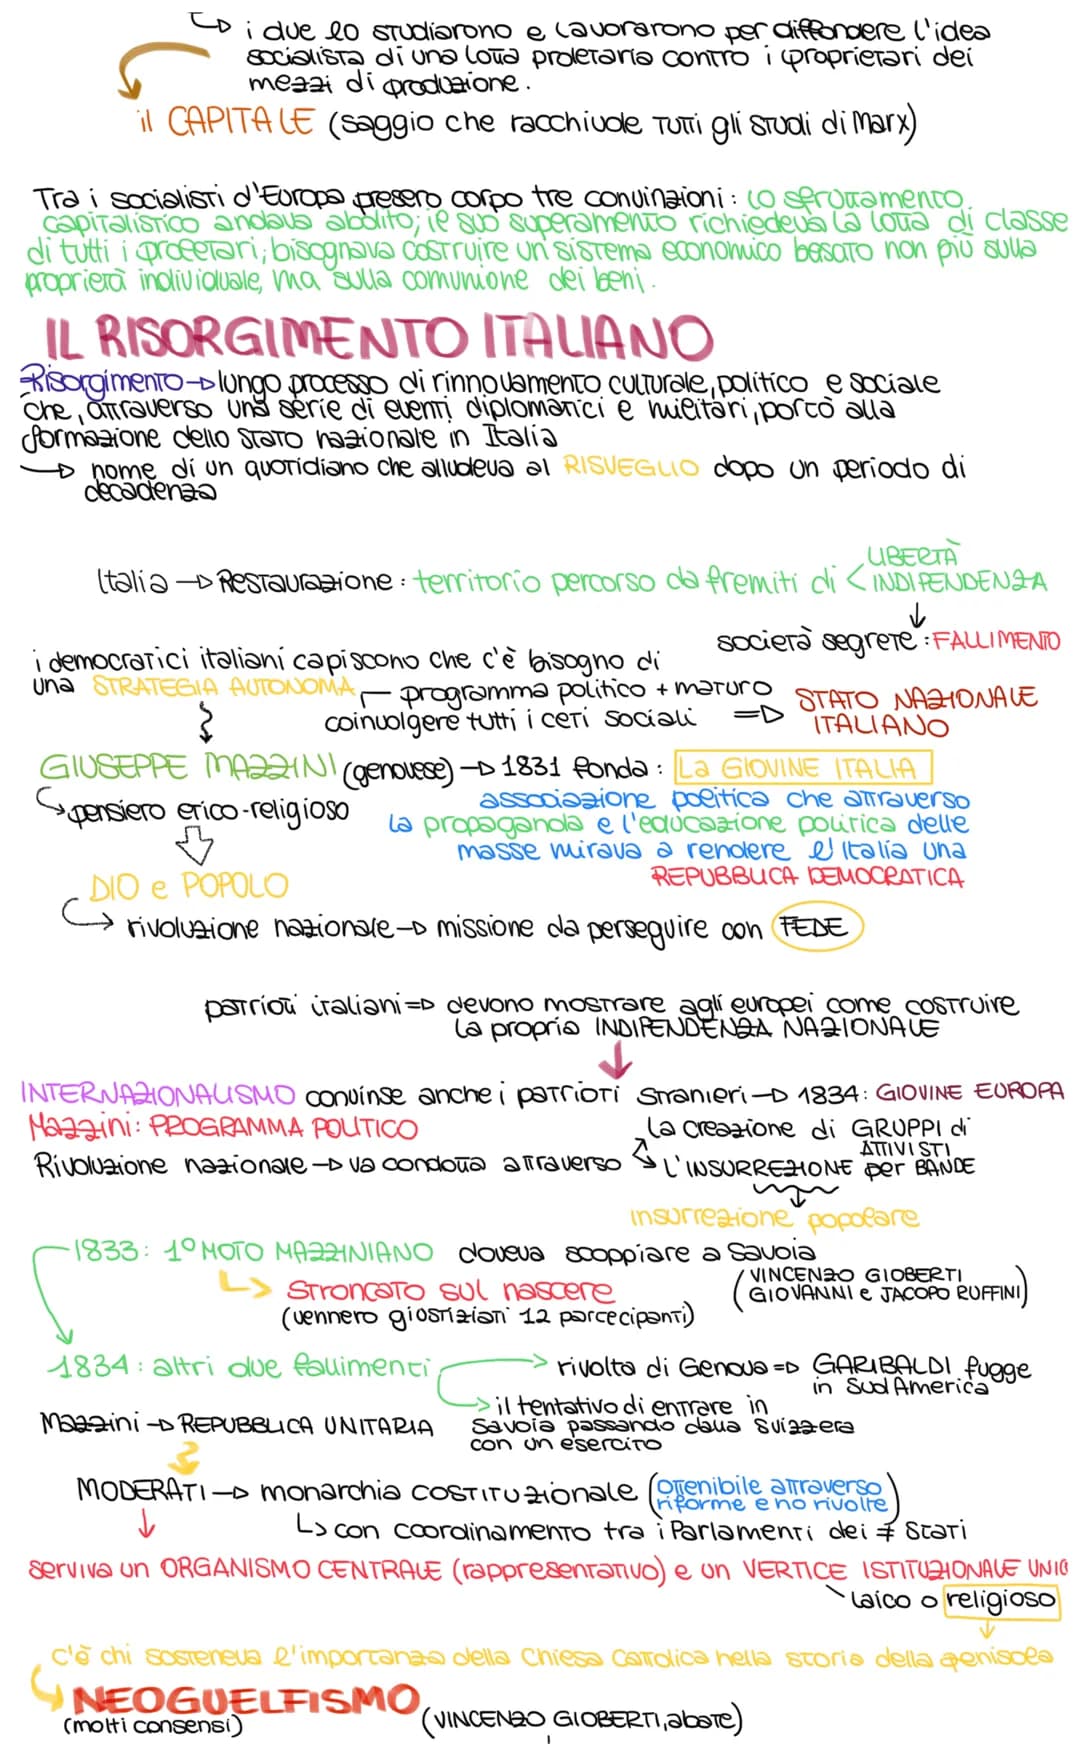 i due lo studiarono e lavorarono per diffondere l'idea
socialista di una lotta proletaria contro i proprietari dei
mezzi di produzione.
il CAPITALE (saggio che racchiude tutti gli studi di Marx)
Tra i socialisti d'Europa presero corpo tre convinzioni: lo sfruttamento
capitalistico andava abolito; il suo superamento richiedeva la lotta di classe
di tutti i proletari; bisognava costruire un sistema economico basato non più sulla
proprietà individuale, ma sulla comunione dei beni.
IL RISORGIMENTO ITALIANO
Risorgimento → lungo processo di rinnovamento culturale, politico e sociale
che, attraverso una serie di eventi diplomatici e militari, portò alla
formazione dello stato nazionale in Italia
→ nome di un quotidiano che alludeva al RISVEGLIO dopo un periodo di
decadenza
Italia → Restaurazione: territorio percorso da fremiti di < LIBERTÀ
INDIPENDENZA
società segrete: FALLIMENTO
i democratici italiani capiscono che c'è bisogno di
una STRATEGIA AUTONOMA programma politico + maturo
coinvolgere tutti i ceti sociali => STATO NAZIONALE
ITALIANO
GIUSEPPE MAZZINI (genovese) → 1831 fonda: La GIOVINE ITALIA
pensiero etico-religioso
associazione politica che attraverso
la propaganda e l'educazione politica delle
masse mirava a rendere l'Italia una
REPUBBLICA DEMOCRATICA
DIO e POPOLO
rivoluzione nazionale → missione da perseguire con FEDE
patrioti italiani => devono mostrare agli europei come costruire
la propria INDIPENDENZA NAZIONALE
INTERNAZIONALISMO convinse anche i patrioti stranieri → 1834: GIOVINE EUROPA
Mazzini: PROGRAMMA POLITICO
Rivoluzione nazionale → va condotta attraverso
la creazione di GRUPPI di
ATTIVISTI
L'INSURREZIONE per BANDE
insurrezione popolare
1833: 1° MOTO MAZZINIANO doveva scoppiare a Savoia
(VINCENZO GIOBERTI
GIOVANNI e JACOPO RUFFINI)
stroncato sul nascere
(vennero giustiziati 12 partecipanti)
1834: altri due fallimenti
rivolta di Genova => GARIBALDI fugge
in Sud America
il tentativo di entrare in
Savoia passando dalla Svizzera
con un esercito
Mazzini → REPUBBLICA UNITARIA
MODERATI → monarchia costituzionale (ottenibile attraverso
riforme e no rivolte)
↳ con coordinamento tra i Parlamenti dei ≠ Stati
serviva un ORGANISMO CENTRALE (rappresentativo) e un VERTICE ISTITUZIONALE UNIC
laico o religioso
c'è chi sosteneva l'importanza della Chiesa Cattolica nella storia della penisola
NEOGUELFISMO
(molti consensi)
(VINCENZO GIOBERTI, abate)